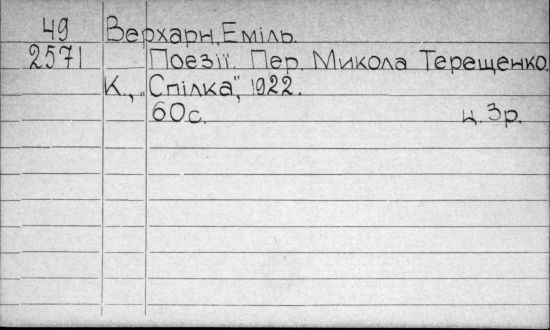 49 Верхарн, Еміль.
2571 Поезії. Пер. Микола Терещенко
К., „Спілка", 1922.
60с. ц. 3р.